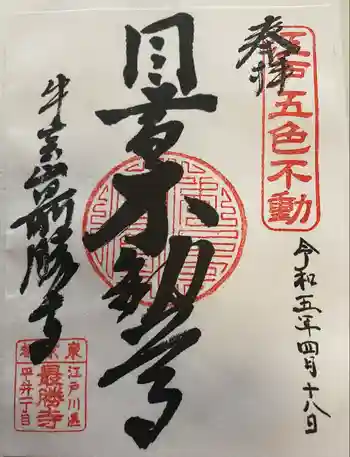 奉拝
江戸五色不動
目黄不動尊
令和五年四月十八日
牛宝山最勝寺
東
江戸川區
最勝寺
平井一丁目